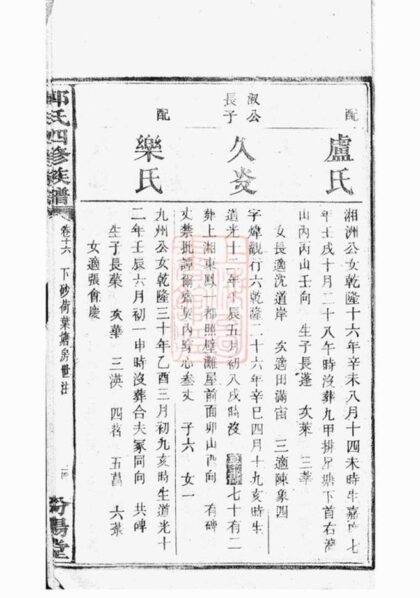 配
盧氏
湘洲公女乾隆十六年辛未八月十四未時生嘉慶七
年壬戌十月二十八午時沒葬九甲排 塘下首右灣
山內丙山壬向 生子長逢 次萊 三莘
女長適沈道岸 次適田滿宙 三適陳象四
淑公
長子
久炎
字煒觀行六乾隆二十六年辛巳四月十九亥時生
道光十二年壬辰五月初八戌時沒 七十有二
葬上湘東鳳一都照壁灘星前面卯山酉向 有碑
丈禁批譚爾 契內穿心叁丈 子六 女一
配
樂氏
九州公女乾隆三十年乙酉三月初九亥時生道光十
二年壬辰六月初一申時沒葬合夫冢同向 共碑
生子長榮 次華 三渶 四茗 五菖 六
女適張會慶
郭氏四修族譜
卷十六 下砂荷葉塘房世注
汾陽堂